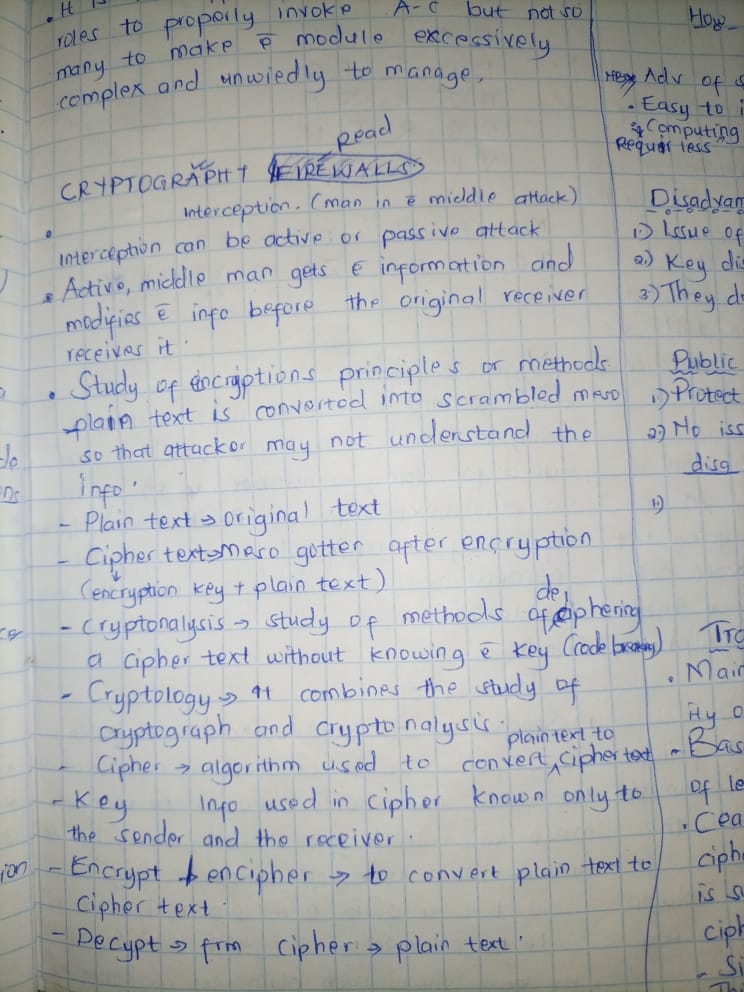 . It is
roles to properly invoke A-C but not so
many to make ē module excessively
complex and unwiedly to manage.
Read
CRYPTOGRAPHY FIREWALLS
interception. (man in ē middle attack)
Interception can be active or passive attack
. Active, middle man gets ē information and
modifies ē info before the original receiver
receives it.
. Study of encryptions principles or methods
plain text is converted into scrambled
so that attacker may not understand the
info.
- Plain text → original text
- Cipher text → gotten after encryption
(encryption key + plain text)
- Cryptonalysis → study of methods of deciphering
a cipher text without knowing ē key (code breaking)
- Cryptology → It combines the study of
cryptograph and cryptonalysis.
- Cipher → algorithm used to convert plain text to cipher text
- Key info used in cipher known only to
the sender and the receiver.
- Encrypt / encipher → to convert plain text to
cipher text.
- Decypt → frm cipher → plain text.
How
Adv of
. Easy to
Computing
Requir less
Disadvan
1) Issue of
2) Key dis
3) They d
Public
1) Protect
2) No iss
disa
1)
Tra
. Main
ity o
- Bas
of le
. Cea
ciph
is su
ciph
- Si